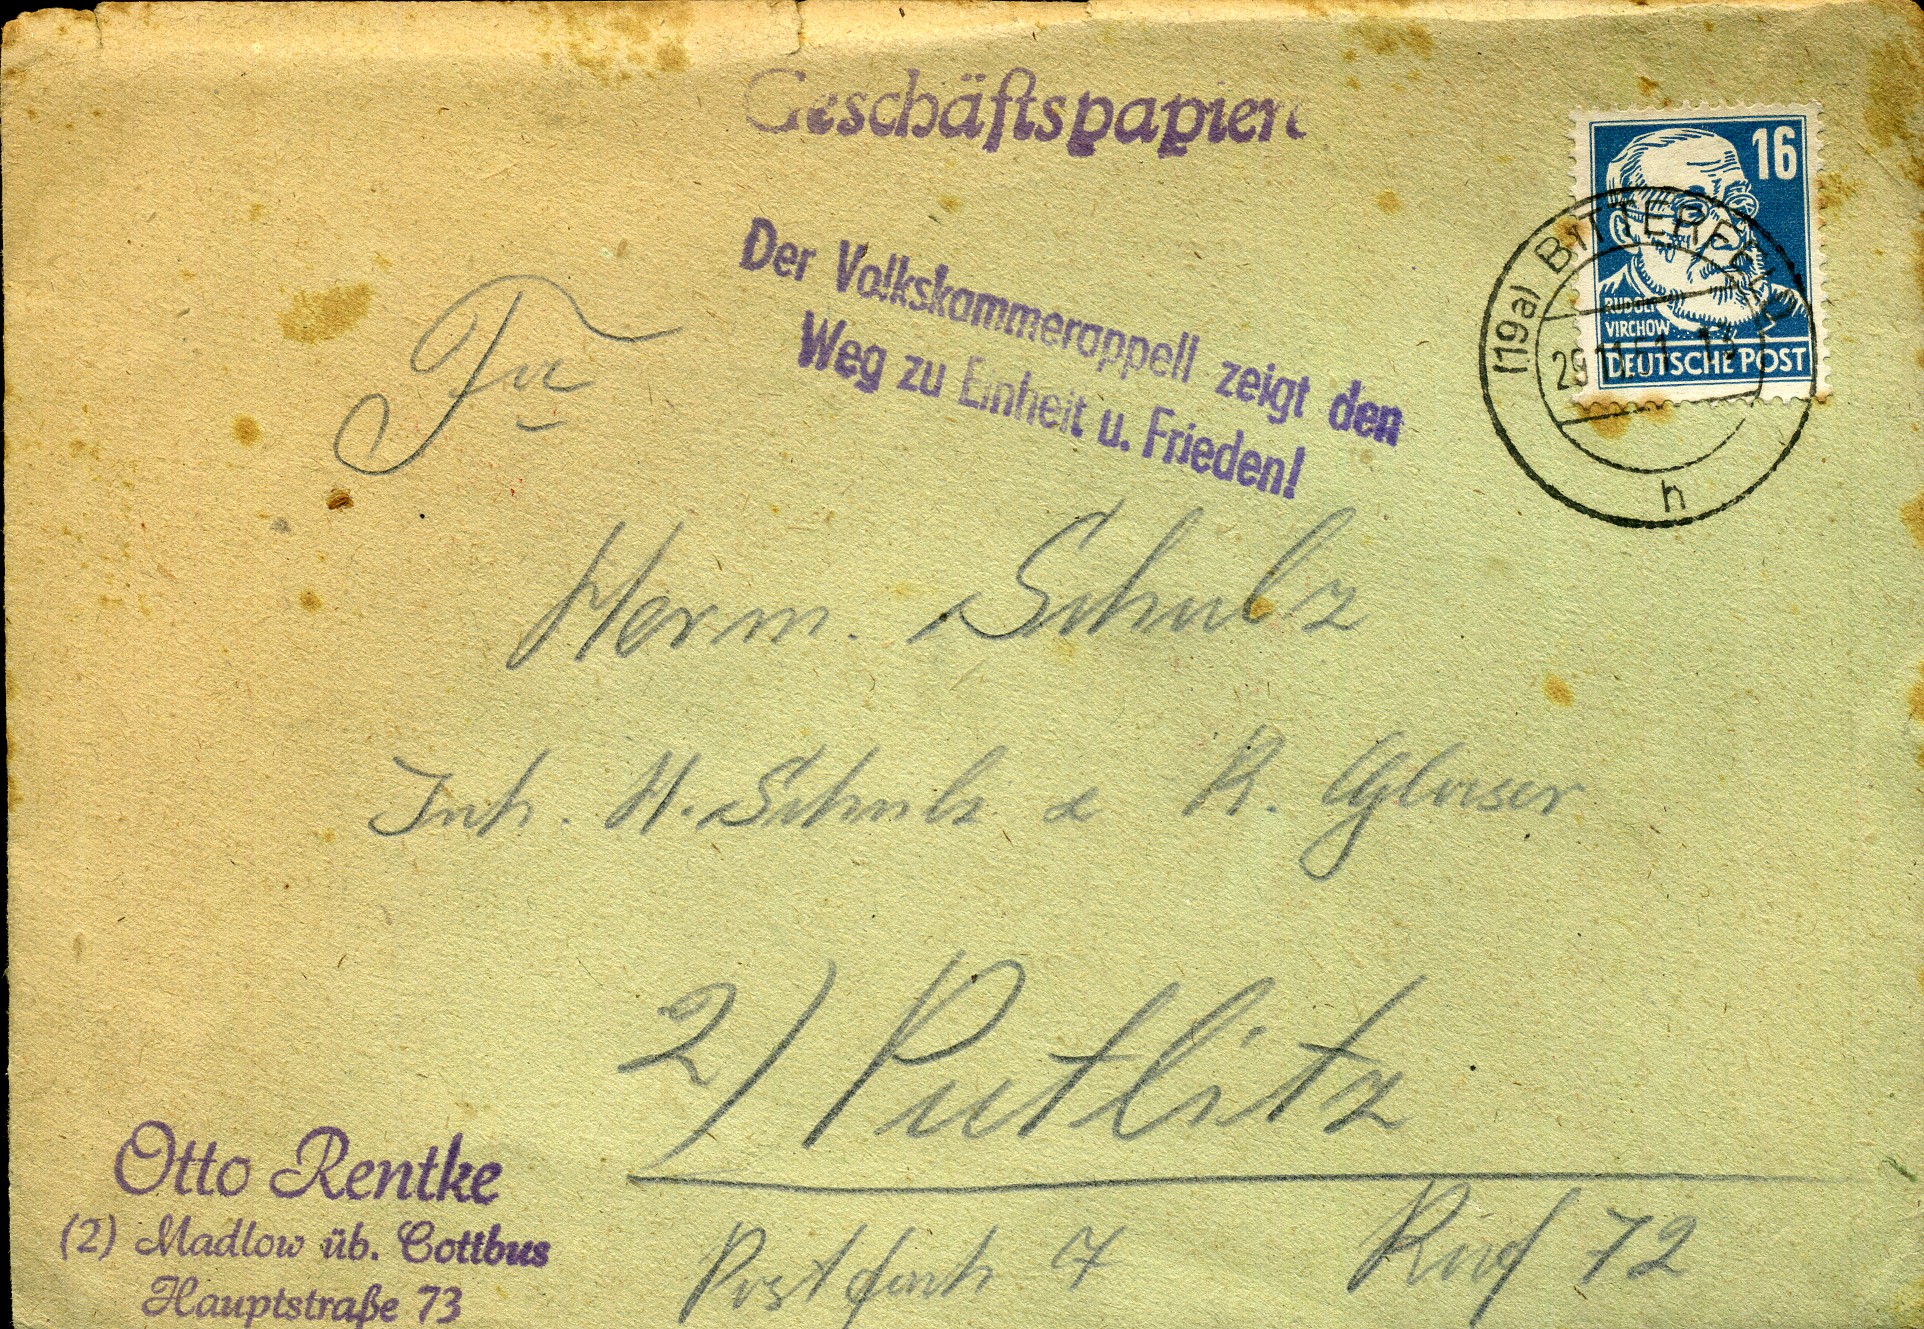 Geschäftspapiere
16
RUDOLF
VIRCHOW
DEUTSCHE POST
(19a) BITTERFELD
29.11.51. 13
h
Der Volkskammerappell zeigt den
Weg zu Einheit u. Frieden!
Fa
Herm. Schulz
Inh. H. Schulz & R. Glaser
2) Putlitz
Postfach 7 Ruf 72
Otto Rentke
(2) Madlow üb. Cottbus
Hauptstraße 73